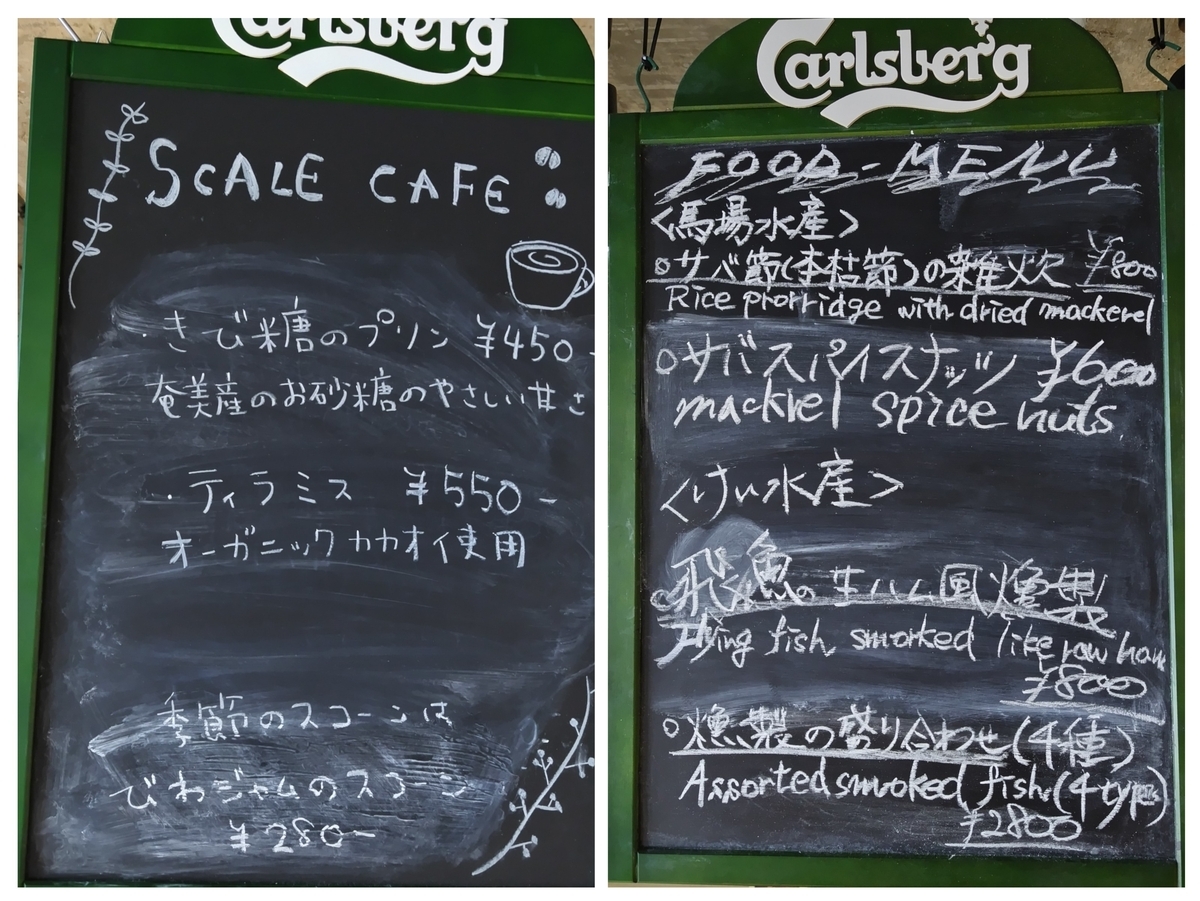 Carlsberg
SCALE CAFE
・きび糖のプリン ¥450-
奄美産のお砂糖のやさしい甘さ
・ティラミス ¥550-
オーガニックカカオ使用
季節のスコーンは
びわジャムのスコーン
¥280-
Carlsberg
FOOD-MENU
<馬場水産>
○サバ節(本枯節)の雑炊 ¥800
Rice prorridge with dried mackerel
○サバスパイスナッツ ¥600
mackrel spice nuts
<けい水産>
○飛魚の生ハム風燻製
Flying fish smorked like raw ham
¥800
○燻製の盛り合わせ(4種)
Assorted smoked fish(4 types)
¥2800